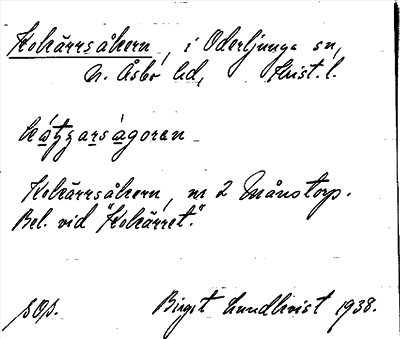 Kokärrsåkern, i Oderljunga sn,
N. Åsbo hd, Krist. l.
Kokärrsåkern, nr 2 Månstorp.
Bel. vid "Kokärret."
sOp. Birgit Lundkvist 1938.